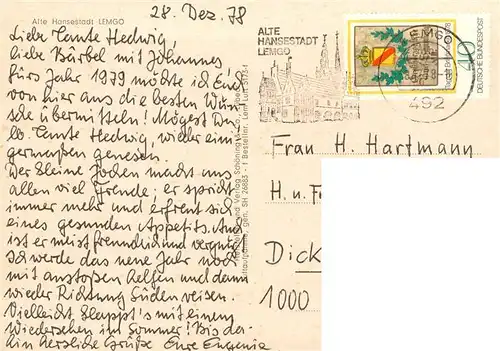 Alte Hansestadt LEMGO
28. Dez. 78
Liebe Tante Hedwig
liebe Bärbel mit Johannes
fürs Jahr 1979 möchte ich Euch
von hier aus die besten Wün-
sche übermitteln! Mögest Du
lb. Tante Hedwig, wieder eini
germaßen genesen.
Der kleine Jochen macht uns
allen viel Freude; er spricht
immer mehr und erfreut sich
eines gesunden Appetits. Auch
ist er meist freundlich und vergnügt
Ich werde das neue Jahr noch
mit anstoßen helfen und dann
wieder Richtung Süden reisen.
Vielleicht klappt's mit einem
Wiedersehen im Sommer! Bis da-
hin herzliche Grüße Eure Eugenia
ALTE
HANSESTADT
LEMGO
LEMGO
492
40
DEUTSCHE BUNDESPOST
Frau H. Hartmann
H. u. F
Dick
1000